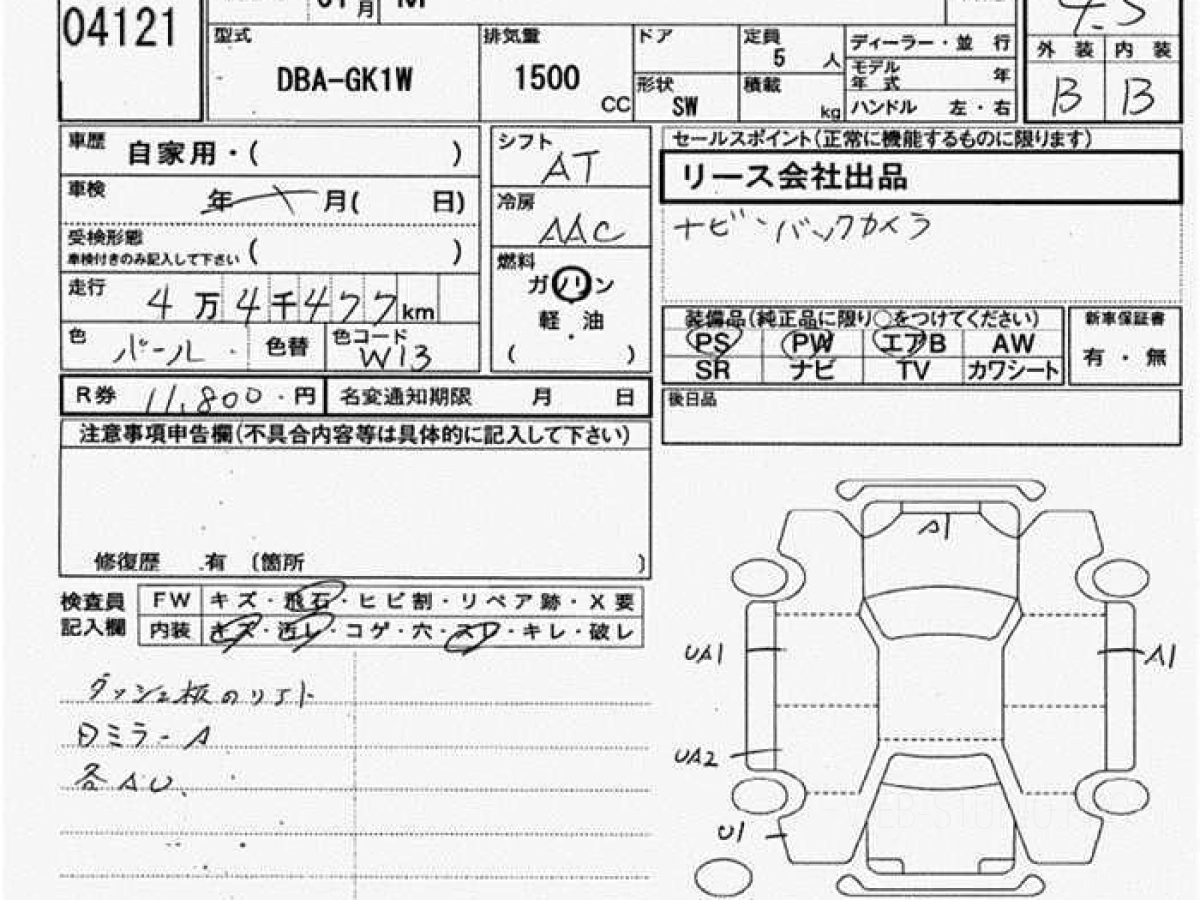 04121
01月 M
4.5
型式 DBA-GK1W
排気量 1500 CC
ドア
形状 SW
定員 5 人
積載 kg
ディーラー・並 行
モデル年 式 年
ハンドル 左・右
外 装 内 装
B B
車歴 自家用・( )
車検 年 月( 日)
受検形態 ( )
車検付きのみ記入して下さい
走行 4万4千477km
色 パール 色替 色コード W13
シフト AT
冷房 AAC
燃料
ガソリン
軽・油
( )
セールスポイント(正常に機能するものに限ります)
リース会社出品
ナビ・バックカメラ
装備品(純正品に限り○をつけてください)
PS PW エアB AW
SR ナビ TV カワシート
新車保証書
有・無
R券 11,800円 名変通知期限 月 日
後日品
注意事項申告欄(不具合内容等は具体的に記入して下さい)
修復歴 有 〔箇所 〕
検査員記入欄
FW キズ・飛石・ヒビ割・リペア跡・X要
内装 キズ・汚レ・コゲ・穴・スレ・キレ・破レ
ダッシュ板のリフト
日ミラーA
各AU、
A1
UA1
A1
UA2
U1